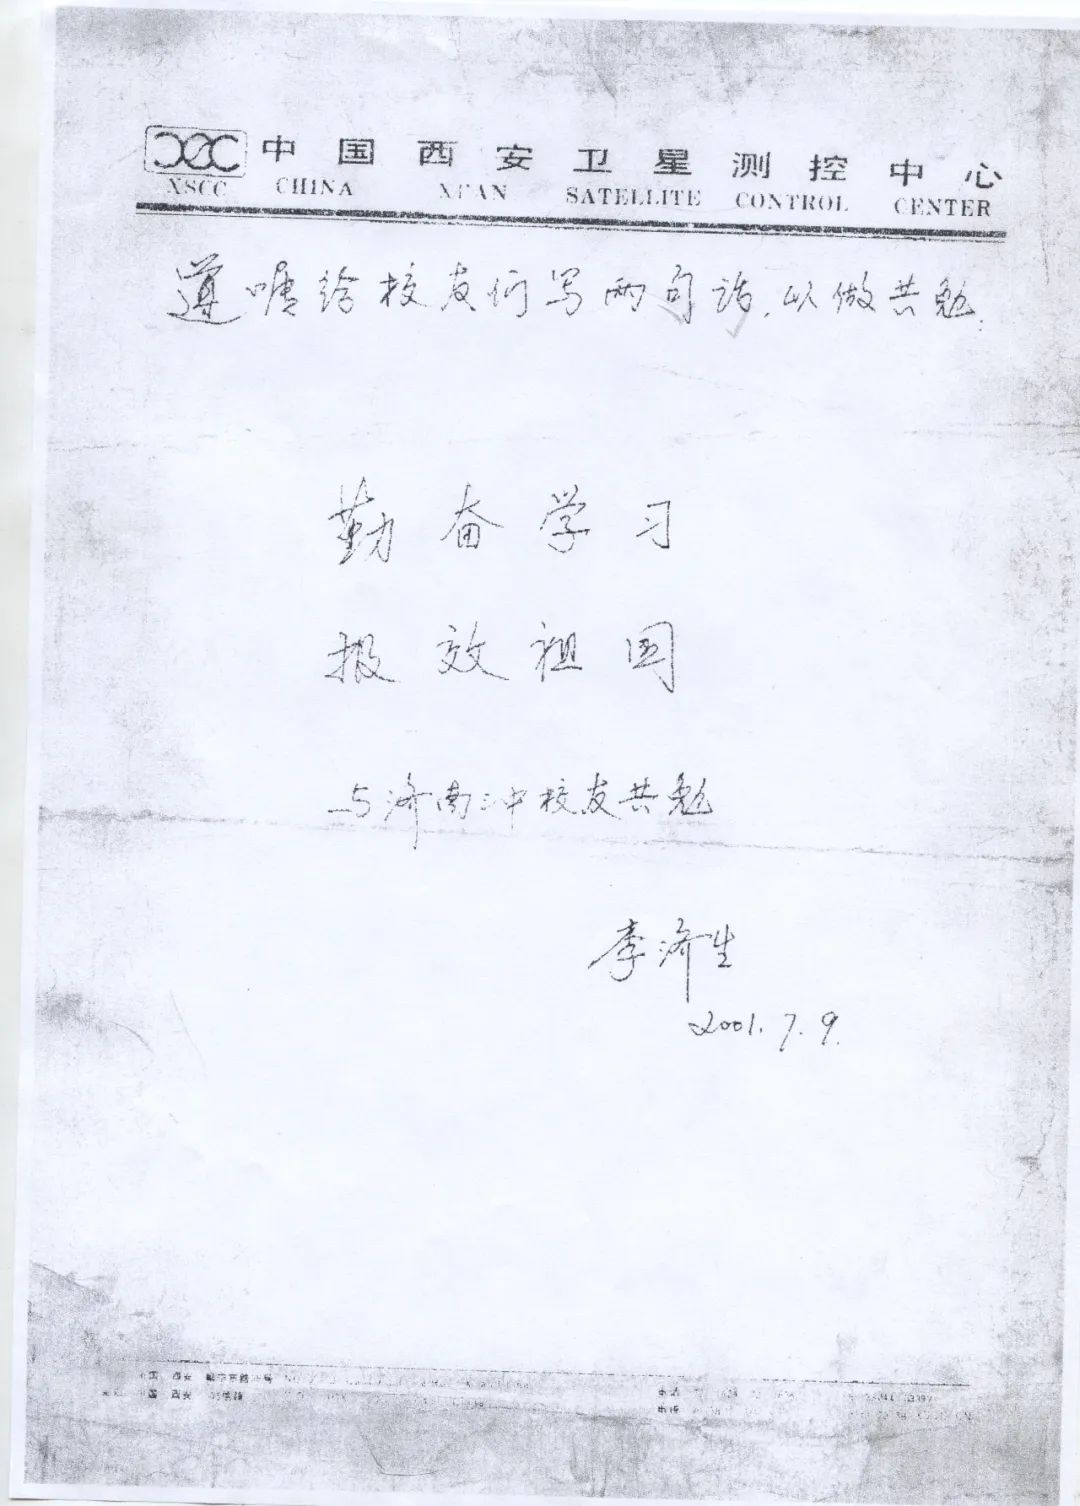 中国西安卫星测控中心
XSCC CHINA XI'AN SATELLITE CONTROL CENTER
遵嘱给校友们写两句话,以做共勉:
勤奋学习
报效祖国
与济南二中校友共勉
李济生
2001.7.9.
中国 西安
中国 西安
电话
电传